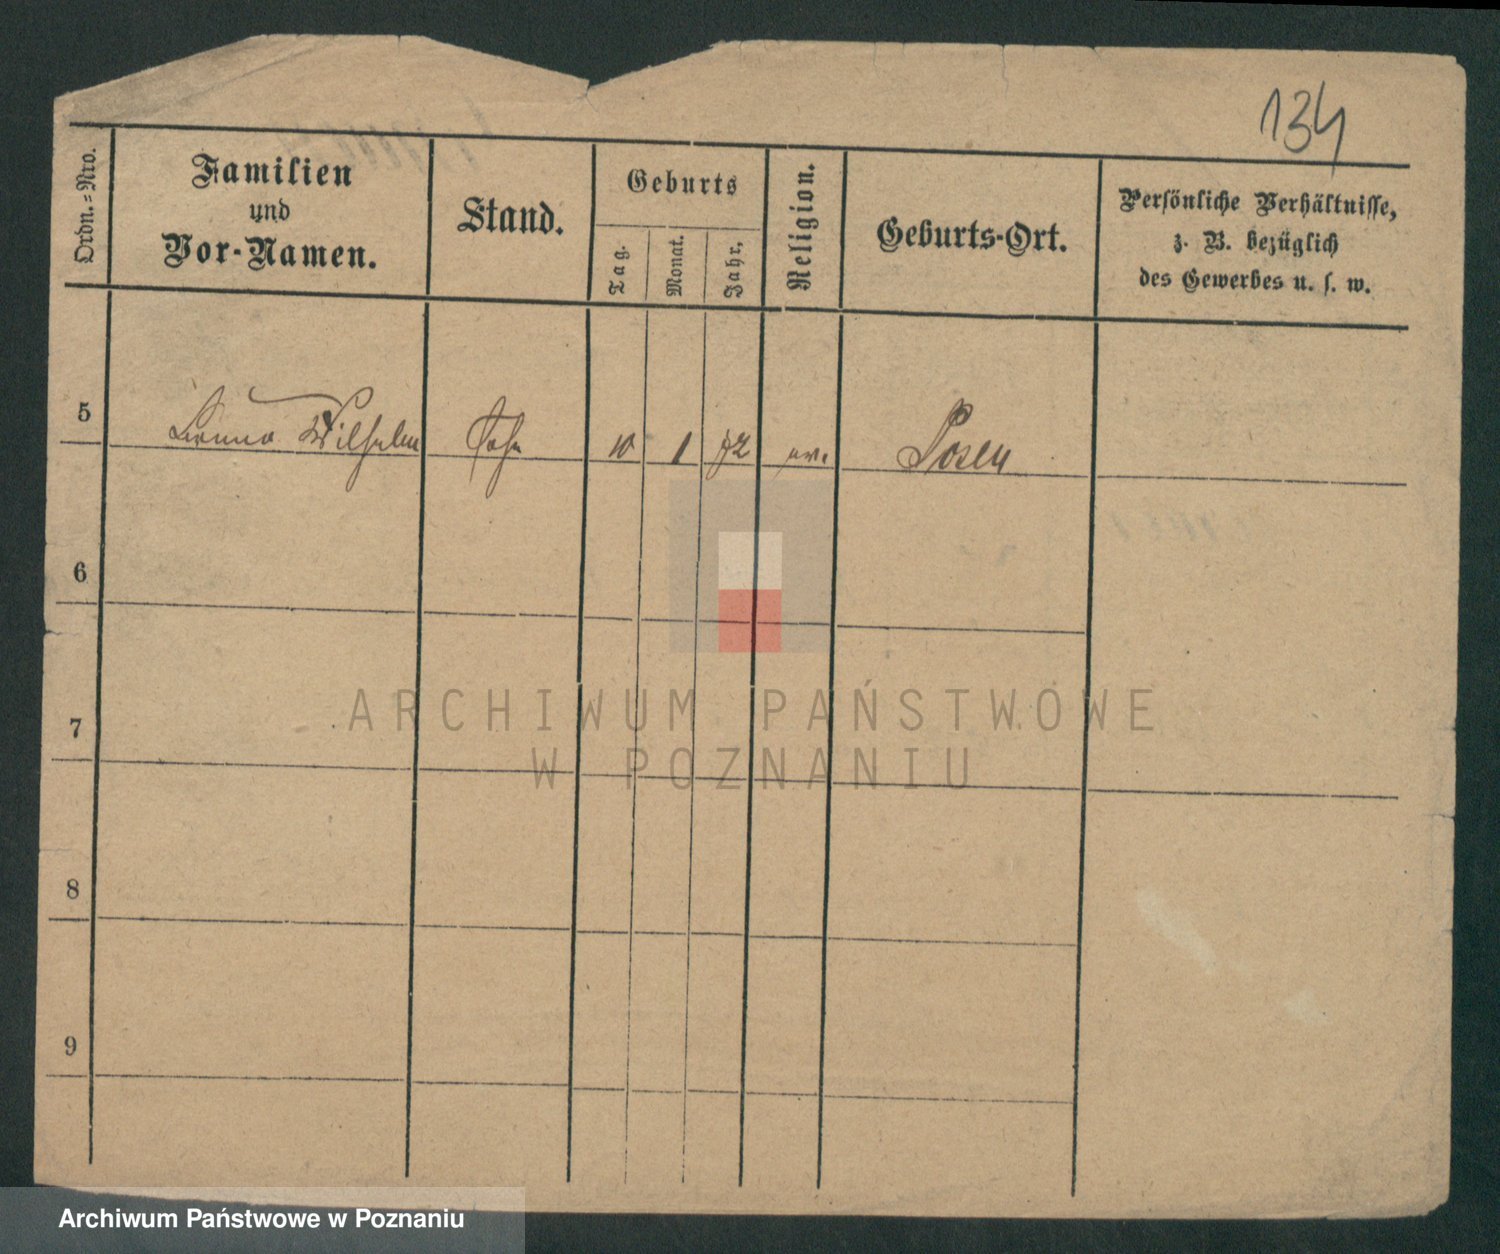 134
Ordn.-Nro.
Familien
und
Vor-Namen.
Stand.
Geburts
Tag.
Monat.
Jahr.
Religion.
Geburts-Ort.
Persönliche Verhältnisse,
z. B. bezüglich
des Gewerbes u. s. w.
5 Wilhelm Sohn 10 1 72 ev. Posen
6
7
8
9
ARCHIWUM PAŃSTWOWE
W POZNANIU
Archiwum Państwowe w Poznaniu